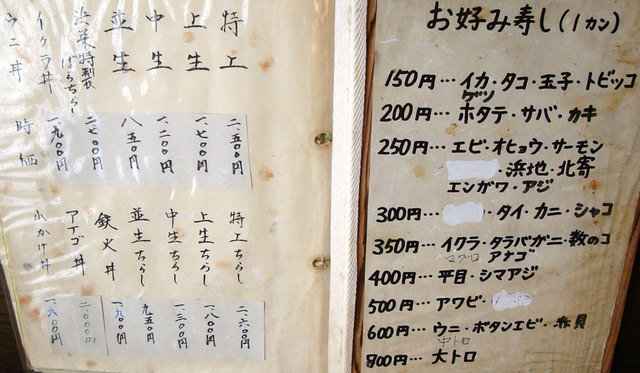 お好み寿し(1カン)
150円…イカ・タコ・玉子・トビッコ
ゲソ
200円…ホタテ・サバ・カキ
250円…エビ・オヒョウ・サーモン
・浜地・北寄
エンガワ・アジ
300円… ・タイ・カニ・シャコ
350円…イクラ・タラバガニ・数のコ
マグロ アナゴ
400円…平目・シマアジ
500円…アワビ・
600円…ウニ・ボタンエビ・赤貝
中トロ
800円…大トロ
特上 二.五00円
上生 一.七00円
中生 一.二00円
並生 八五0円
特製ばらちらし 二.七00円
イクラ丼 一.九00円
ウニ丼 時価
特上ちらし 二.六00円
上生ちらし 一.八00円
中生ちらし 一.三00円
並生ちらし 九五0円
鉄火丼 一.九00円
アナゴ丼 二.000円
山かけ丼